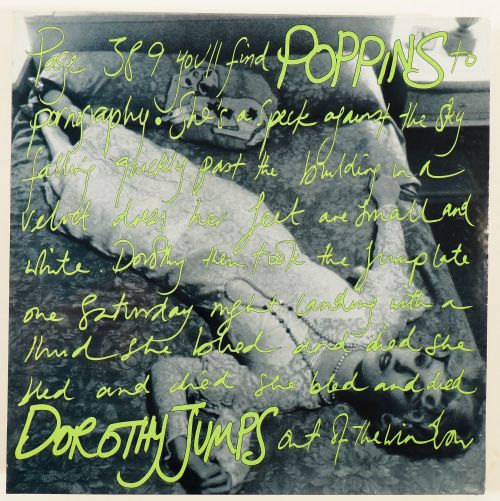 Page 389 you'll find POPPINS to
pornography. She's a speck against the sky
falling quickly past the building in a
velvet dress her feet are small and
white. Dorothy then took the jump late
one Saturday night landing with a
thud she bled and died she
bled and died she bled and died
DOROTHY JUMPS out of the window